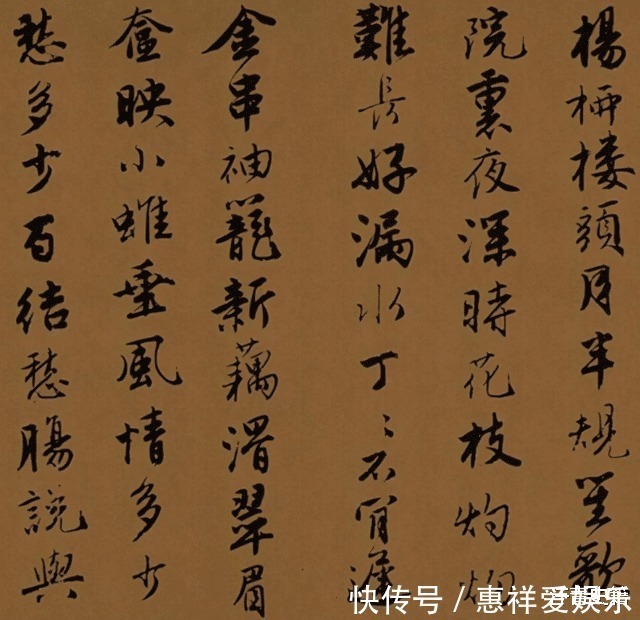 楊柳樓頭月半規笙歌
院裏夜深時花枝灼
難長好漏水丁〻不肯遲
金串袖籠新藕滑翠眉
奩映小蛾垂風情多少
愁多少百結愁腸說與
快传号 / 惠祥爱娱乐